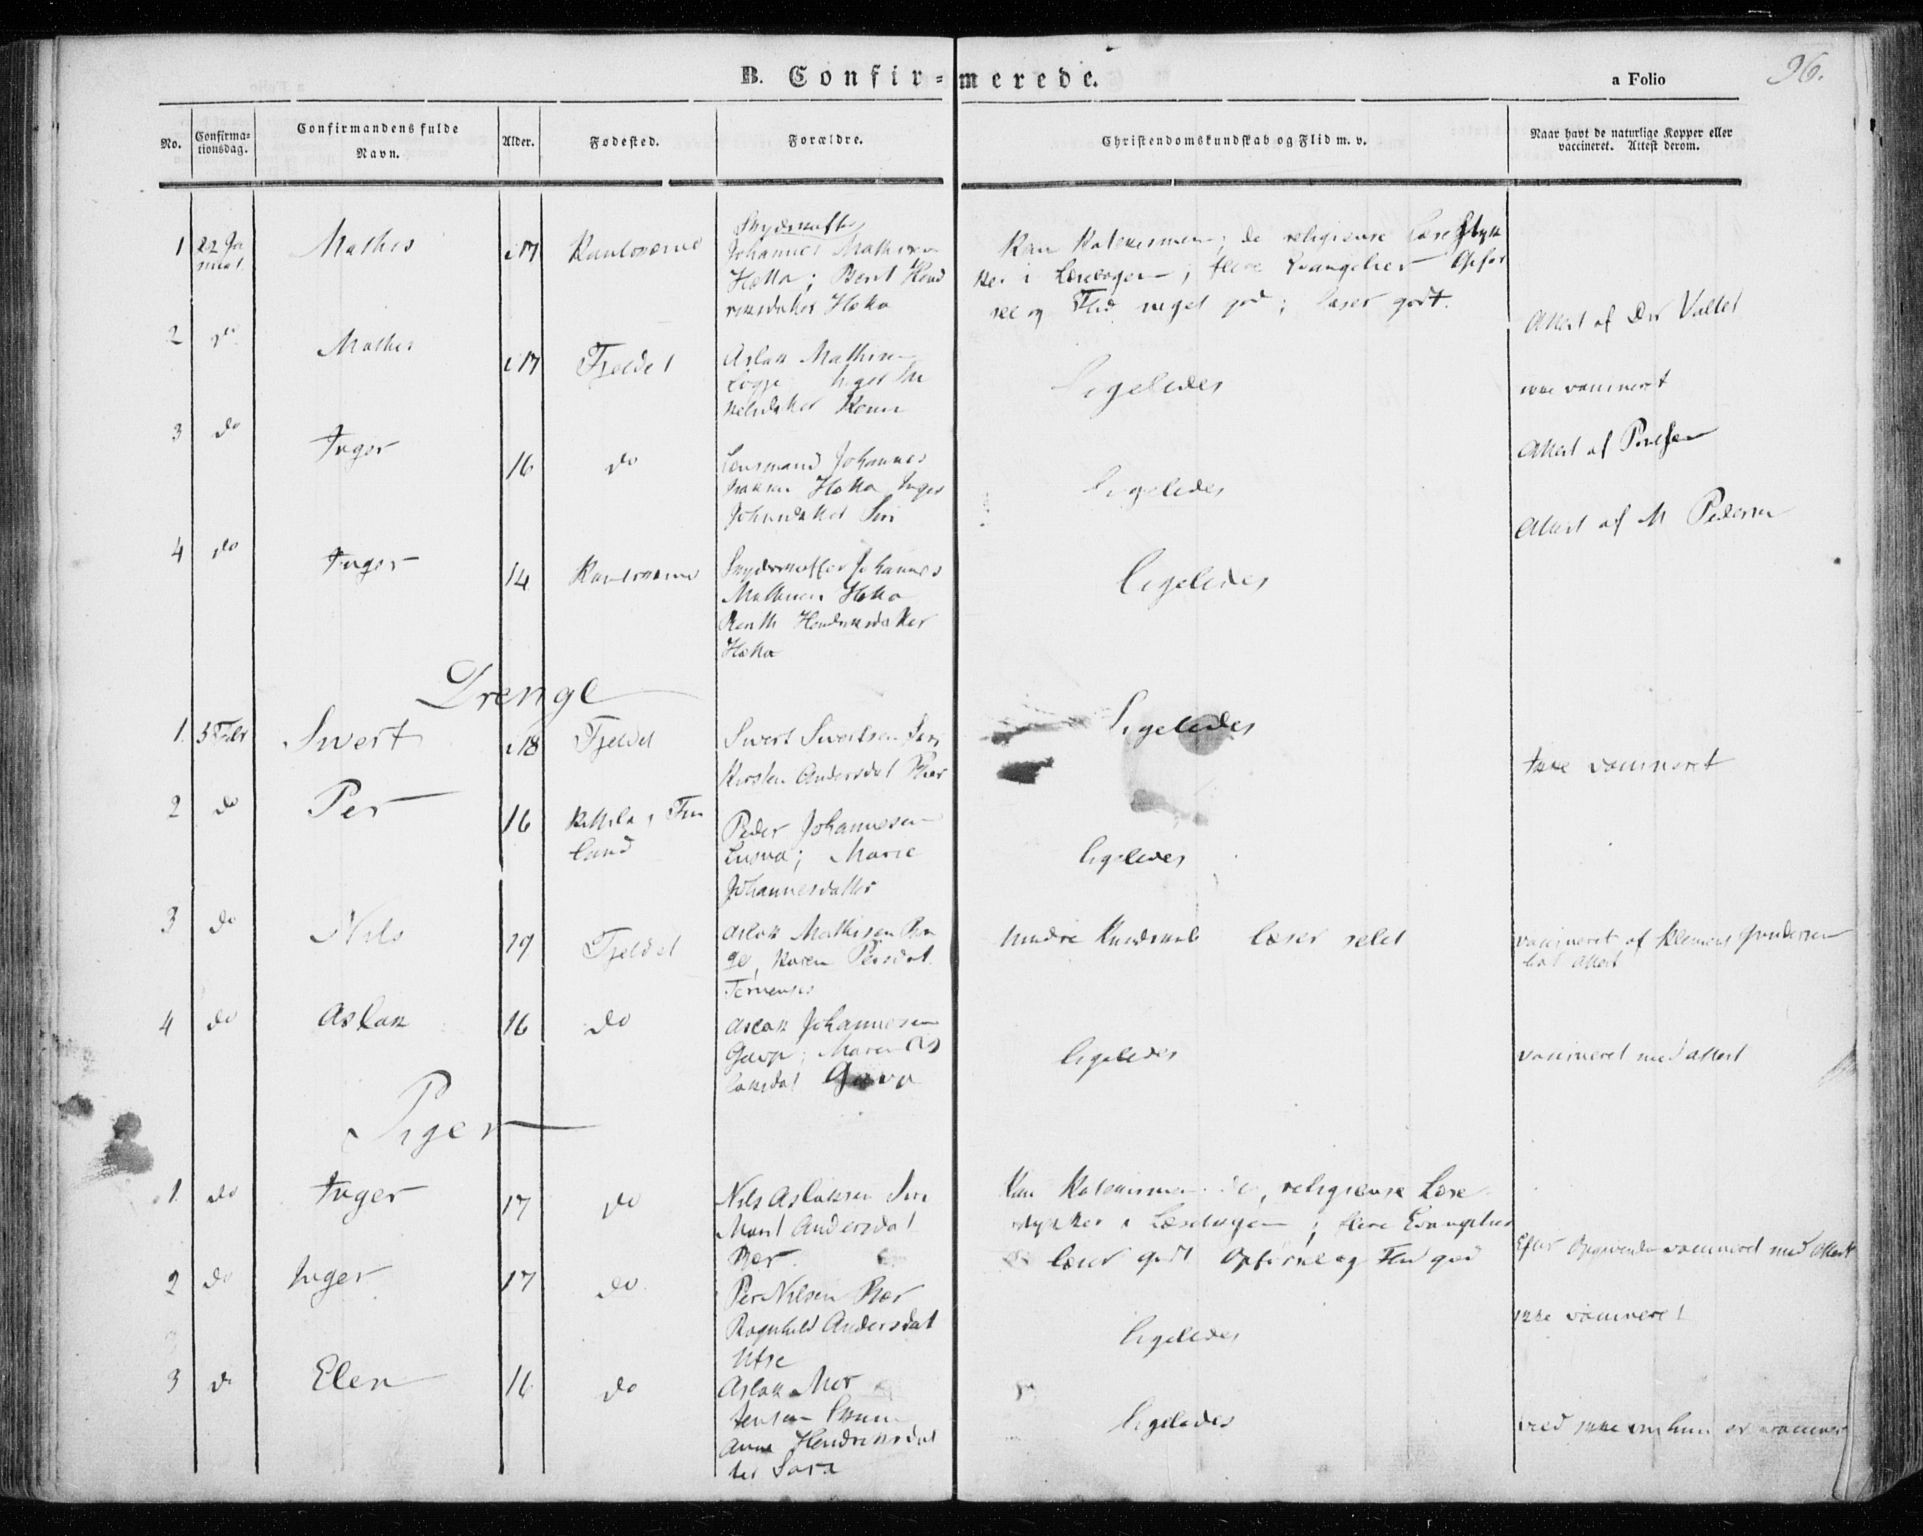 B. Confir-merede.
a Folio
96.
No.
Confirma-
tionsdag.
Confirmandens fulde
Navn.
Alder.
Fødested.
Forældre.
Christendomskundskab og Flid m. v.
Naar havt de naturlige Kopper eller
vaccineret. Attest derom.
1
22
Mathis
17
Kautokeino
Johannes Mathisen
Hætta; Berit Hend
riksdatter Hætta
Kan Katekismen; de religieuse Læsestyk
ker i Læsebogen; flere Evangelier Opfør
sel og Flid meget god; læser godt.
2
do
Mathis
17
Fjeldet
Aslak Mathisen
Inger
ligeledes
Attest af Valle
ikke vaccineret
3
do
Inger
16
do
Lensmand Johannes
Hætta Inger
Johnsdatter Siri
ligeledes
Attest af
4
do
Inger
14
Kautokeino
Johannes
Mathisen Hætta
Berith Hendriksdatter
Hætta
ligeledes
Attest af M Pedersen
Drenge
1
5 Febr
Sivert
18
Fjeldet
Sivert Sivertsen
Kirsten Andersdat Bær
ligeledes
Ikke vaccineret
2
do
Per
16
Kittila i Fin
land
Peder Johannesen
Marie
Johannesdatter
ligeledes
3
do
Nils
19
Fjeldet
Aslak Mathisen
Karen Persdat
mindre Kundskab læser slet
vaccineret af Klemens Gundersen
4
do
Aslak
16
do
Aslak Johannesen
Gavp; Maren As
laksdat
ligeledes
vaccineret med Attest
Piger
1
do
Inger
17
do
Nils Aslaksen Siri
Marit Andersdat
Bær
Kan Katekismen de religieuse Læse
stykker i Læsebogen; flere Evangelier
læser godt Opførsel og Flid god
Efter Opgivende vaccineret med Attest
2
do
Inger
17
do
Per Nilsen Bær
Ragnhild Andersdat
Utsi
ligeledes
ikke vaccineret
3
do
Elen
16
do
Aslak Mor
tensen
Anne Hendriksdat
ter Sara
ligeledes
ved ikke om hun er vaccineret